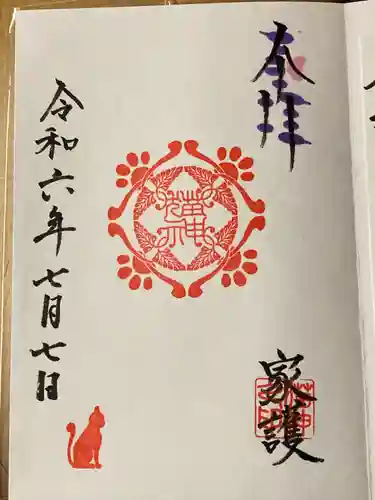 奉拝
家護
猫神
令和六年七月七日